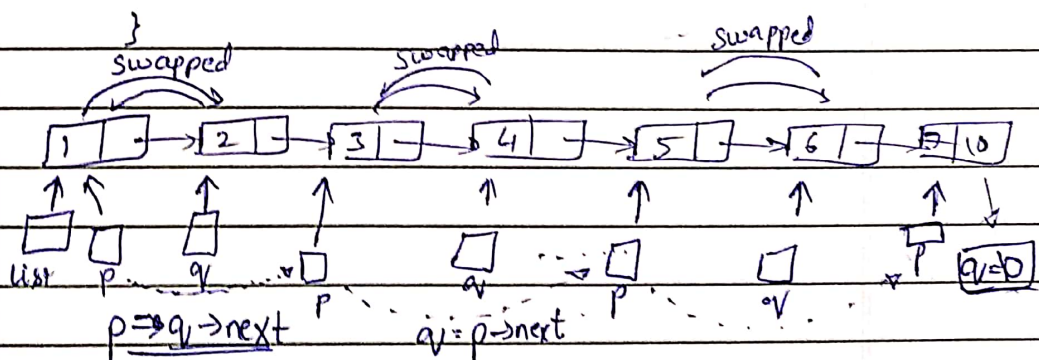 }
swapped swapped swapped
1 2 3 4 5 6 7 10
list p q p q p q p q=0
p => q->next q = p->next